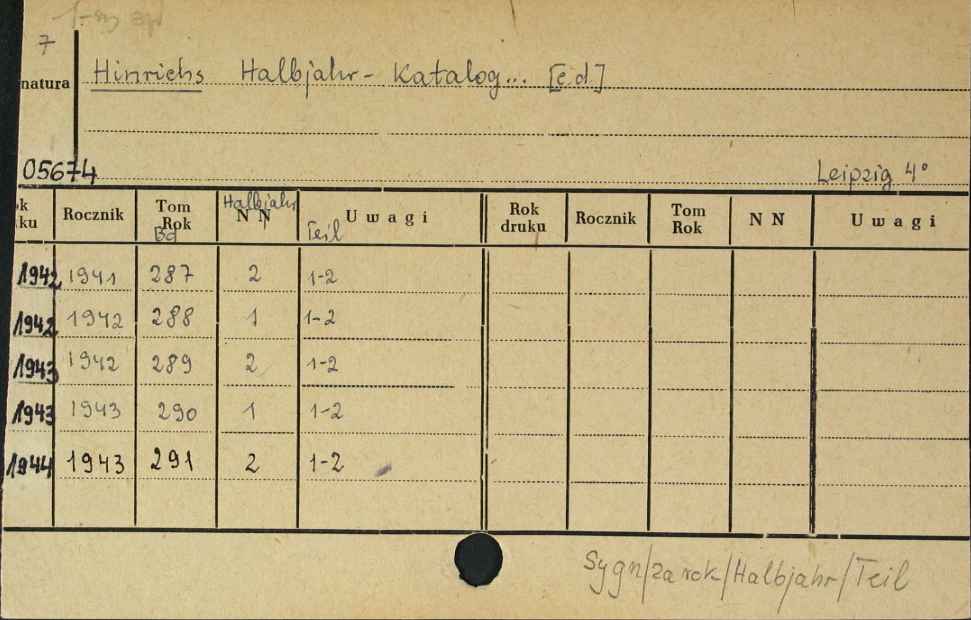 7
natura
Hinrichs Halbjahr- Katalog... [e.d]
05674
Leipzig 4°
ok
ku
Rocznik
Tom
Rok
Bd
Halbjahr
N N
U w a g i
Teil
Rok
druku
Rocznik
Tom
Rok
N N
U w a g i
1942 1941 287 2 1-2
1942 1942 288 1 1-2
1943 1942 289 2 1-2
1943 1943 290 1 1-2
1944 1943 291 2 1-2
Sygn/za rok/Halbjahr/Teil